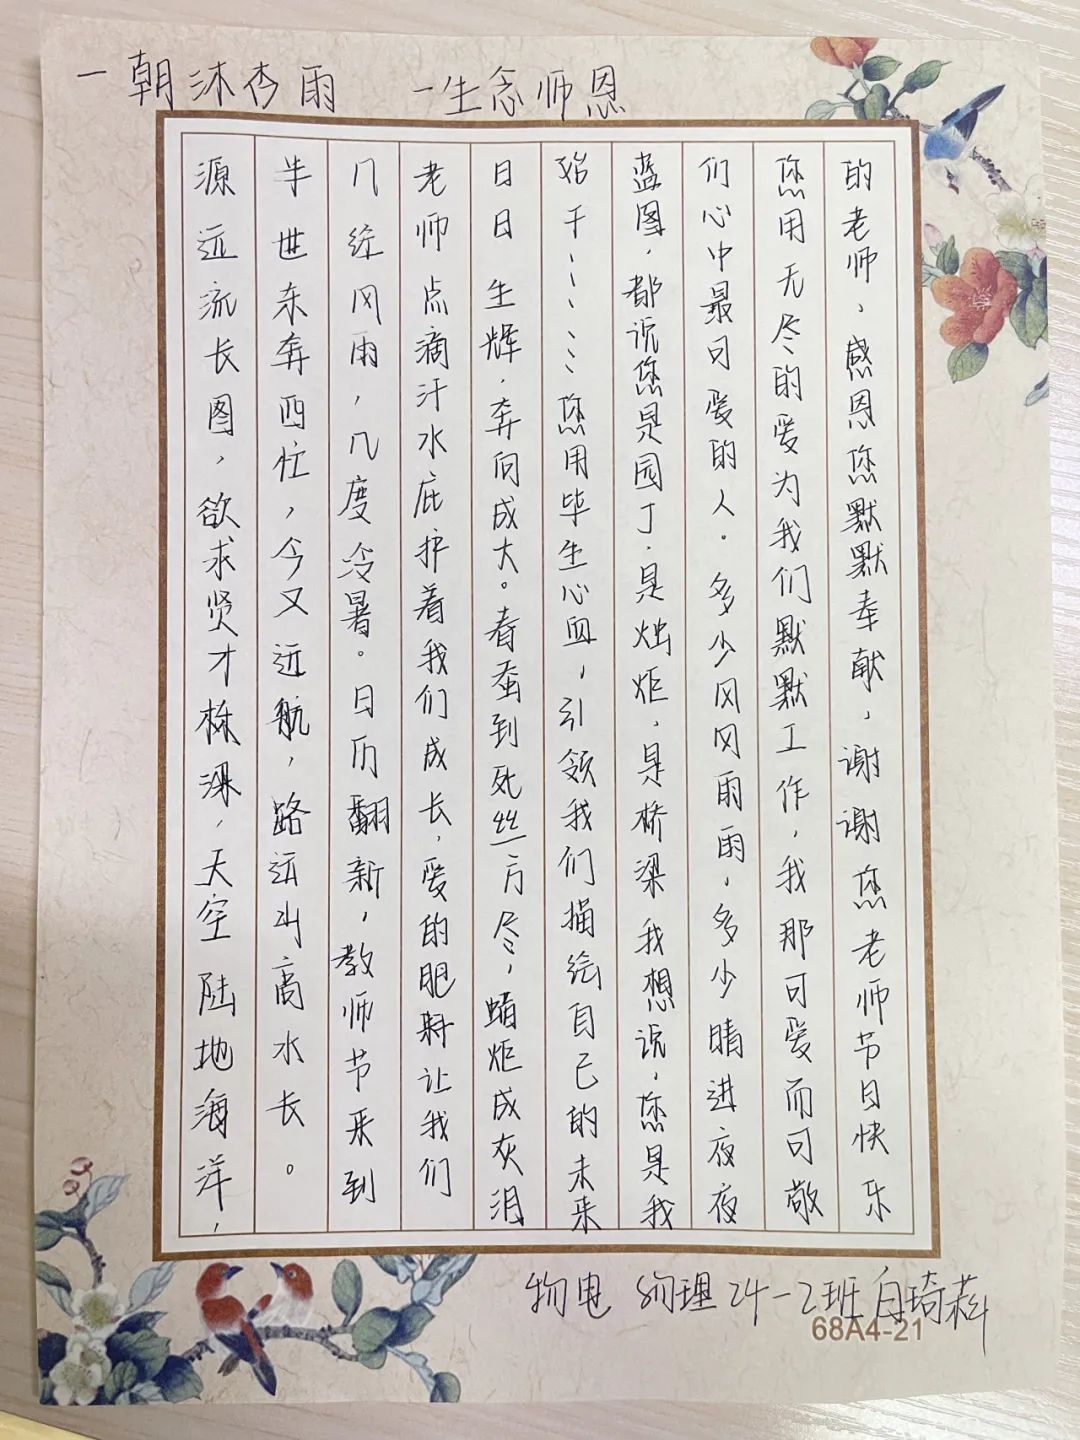 一朝沐杏雨 一生念师恩
源远流长图，欲求贤才栋梁，天空陆地海洋，
半世东奔西忙，今又远航，路远山高水长。
几经风雨，几度冷暑。日历翻新，教师节来到
老师点滴汗水庇护着我们成长，爱的肥料让我们
日日生辉，奔向成大。春蚕到死丝方尽，蜡炬成灰泪
始干……您用毕生心血，引领我们描绘自己的未来
蓝图，都说您是园丁，是烛炬，是桥梁我想说，您是我
们心中最可爱的人。多少风风雨雨，多少晴进夜夜
您用无尽的爱为我们默默工作，我那可爱而可敬
的老师，感恩您默默奉献，谢谢您老师节日快乐
物电 物理24-2班 白琦
68A4-21